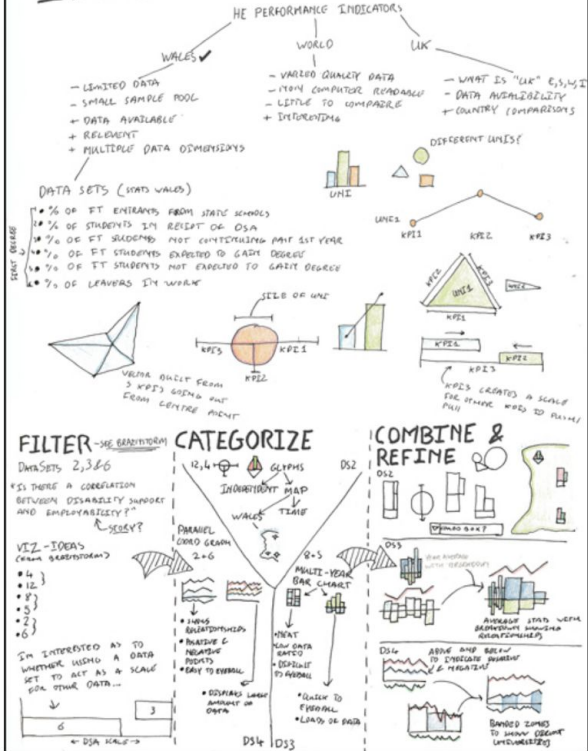 HE PERFORMANCE INDICATORS
WALES
WORLD
UK
- LIMITED DATA
- SMALL SAMPLE POOL
+ DATA AVAILABLE
+ RELEVENT
+ MULTIPLE DATA DIMENSIONS
- VARIED QUALITY DATA
- NON COMPUTER READABLE
- LITTLE TO COMPAIRE
+ INTERESTING
- WHAT IS "UK" E,S,W,I
- DATA AVIALIBILITY
+ COUNTRY COMPARISONS
DIFFERENT UNIS?
UNI
UNI1
KPI1
KPI2
KPI3
DATA SETS (STATS WALES)
FIRST DEGREE
1 % OF FT ENTRANTS FROM STATE SCHOOLS
2 % OF STUDENTS IN RECIPT OF DSA
3 % OF FT STUDENTS NOT CONTINUING PAST 1ST YEAR
4 % OF FT STUDENTS EXPECTED TO GAIN DEGREE
5 % OF FT STUDENTS NOT EXPECTED TO GAIN DEGREE
6 % OF LEAVERS IN WORK
KPI2
KPI3
UNI1
KPI1
SIZE OF UNI
KPI3
KPI1
KPI2
KPI1
KPI2
KPI3
VECTOR BUILT FROM
3 KPIS GOING OUT
FROM CENTRE POINT
KPI3 CREATES A SCALE
FOR OTHER KPIS TO PUSH/
PULL
FILTER - SEE BRAINSTORM
DATASETS 2,3&6
"IS THERE A CORRELATION
BETWEEN DISABILITY SUPPORT
AND EMPLOYABILITY?"
STORY?
VIZ-IDEAS
(FROM BRAINSTORM)
• 4
• 12
• 8
• 5
• 2
• 6
I'M INTERESTED AS TO
WHETHER USING A DATA
SET TO ACT AS A SCALE
FOR OTHER DATA...
3
6
← DSA SCALE →
CATEGORIZE
12,4
GLYPHS
DS2
INDEPENDENT
MAP
WALES
TIME
PARALLEL
CORD GRAPH
2+6
8+5
MULTI-YEAR
BAR CHART
• SHOWS
RELATIONSHIPS
• POSITIVE &
NEGATIVE
POINTS
• EASY TO EYEBALL
• DISPLAYS LARGE
AMOUNT OF
DATA
• NEAT
LOW DATA
RATIO
• DIFFICULT
TO EYEBALL
• QUICK TO
EYEBALL
• LOADS OF DATA
DS4
DS3
COMBINE &
REFINE
DS2
COMBO BOX?
DS3
BAR AVERAGE
WITH BREAKDOWN
AVERAGE STATS WITH
BREAKDOWN SHOWING
RELATIONSHIPS
DS4
ABOVE AND BELOW
TO INDICATE POSITIVE
& NEGATIVE
BANDED ZONES
TO SHOW